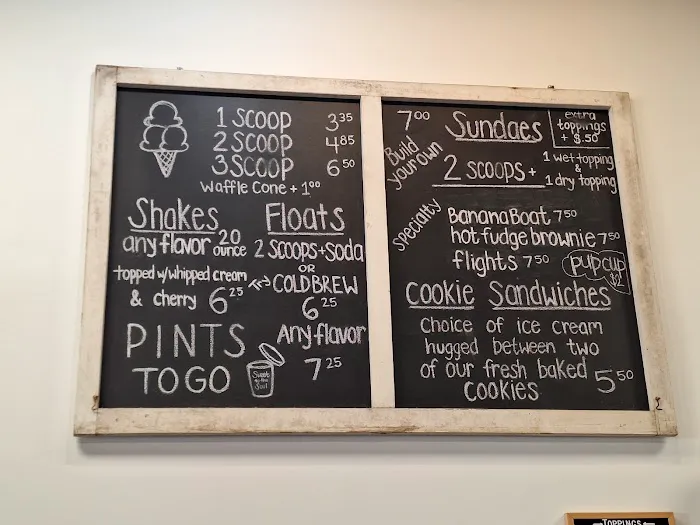 1 SCOOP 3 35
2 SCOOP 4 85
3 SCOOP 6 50
Waffle Cone + 1 00
Shakes
any flavor 20 ounce
topped w/whipped cream
& cherry 6 25
Floats
2 SCOOPS + SODA
OR
Try COLDBREW
6 25
PINTS
TO GO
Any flavor
7 25
7 00
Build your own
Sundaes
extra
toppings
+ $.50
2 SCOOPS +
1 wet topping
&
1 dry topping
specialty
Banana Boat 7 50
hot fudge brownie 7 50
flights 7 50
pup cup
$2
Cookie Sandwiches
Choice of ice cream
hugged between two
of our fresh baked
cookies 5 50
TOPPINGS